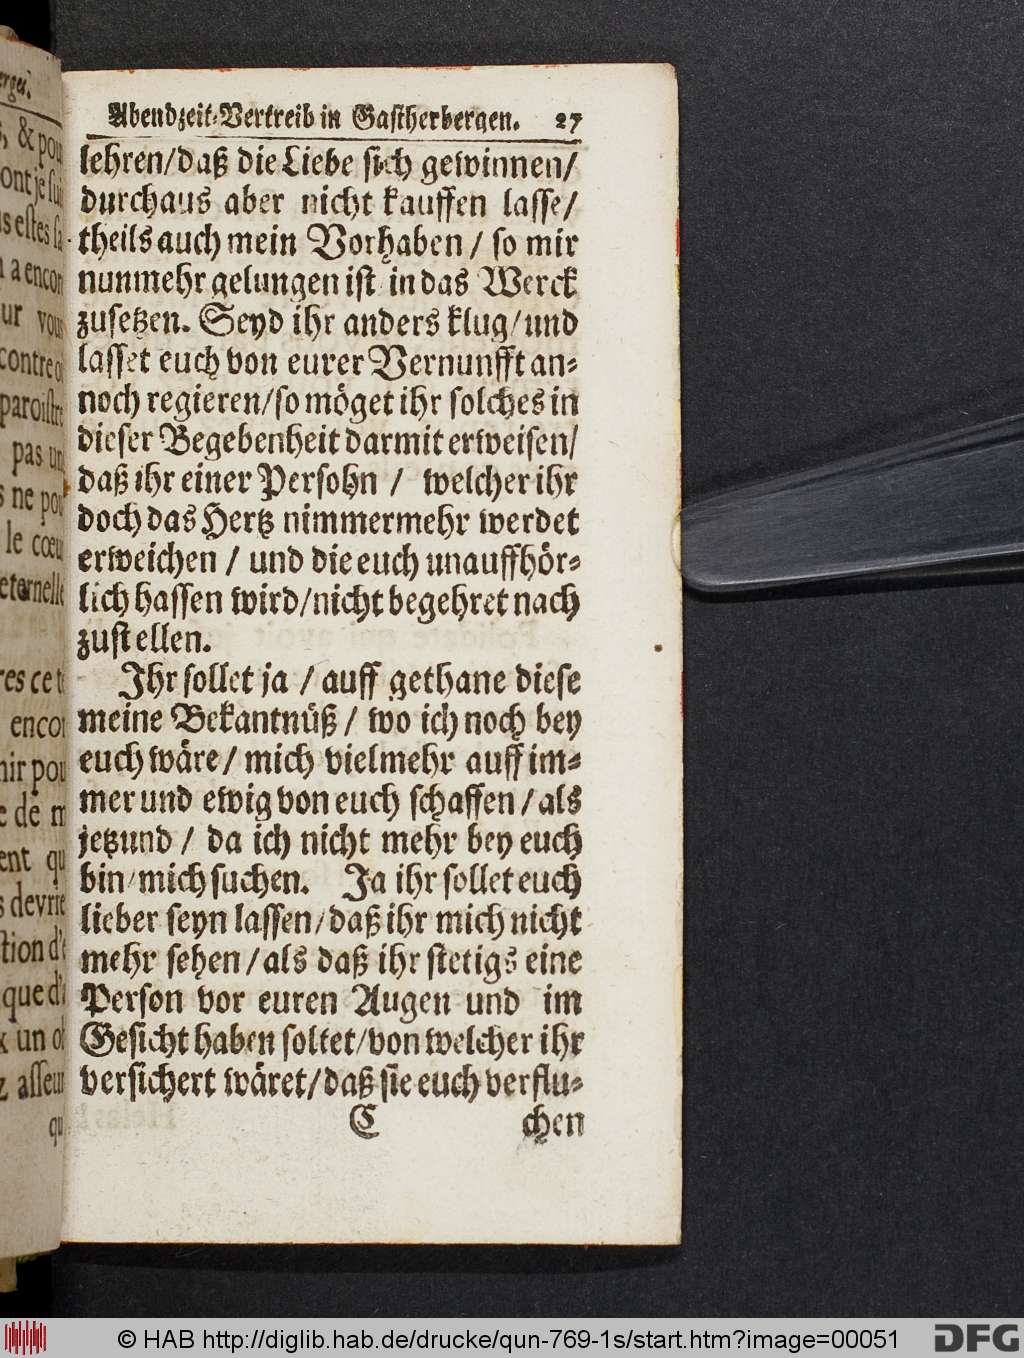 Abendzeit-Vertreib in Gastherbergen. 27
lehren/daß die Liebe sich gewinnen/
durchaus aber nicht kauffen lasse/
theils auch mein Vorhaben / so mir
nunmehr gelungen ist in das Werck
zusetzen. Seyd ihr anders klug/und
lasset euch von eurer Vernunfft an-
noch regieren/so möget ihr solches in
dieser Begebenheit darmit erweisen/
daß ihr einer Persohn / welcher ihr
doch das Hertz nimmermehr werdet
erweichen / und die euch unauffhör-
lich hassen wird/nicht begehret nach
zustellen.
Ihr sollet ja / auff gethane diese
meine Bekantnüß / wo ich noch bey
euch wäre / mich vielmehr auff im-
mer und ewig von euch schaffen / als
jetzund / da ich nicht mehr bey euch
bin/mich suchen. Ja ihr sollet euch
lieber seyn lassen/daß ihr mich nicht
mehr sehen / als daß ihr stetigs eine
Person vor euren Augen und im
Gesicht haben soltet/von welcher ihr
versichert wäret/daß sie euch verflu-
C chen
, & pou
ont je sui
s estes sa
a encor
ur vous
contre
paroistre
pas un
s ne pou
le cœur
eternelle
res ce t
encor
nir pou
e de m
ent qu
s devrie
stion d'
que d'
x un o
z asseur
qu
© HAB http://diglib.hab.de/drucke/qun-769-1s/start.htm?image=00051
DFG